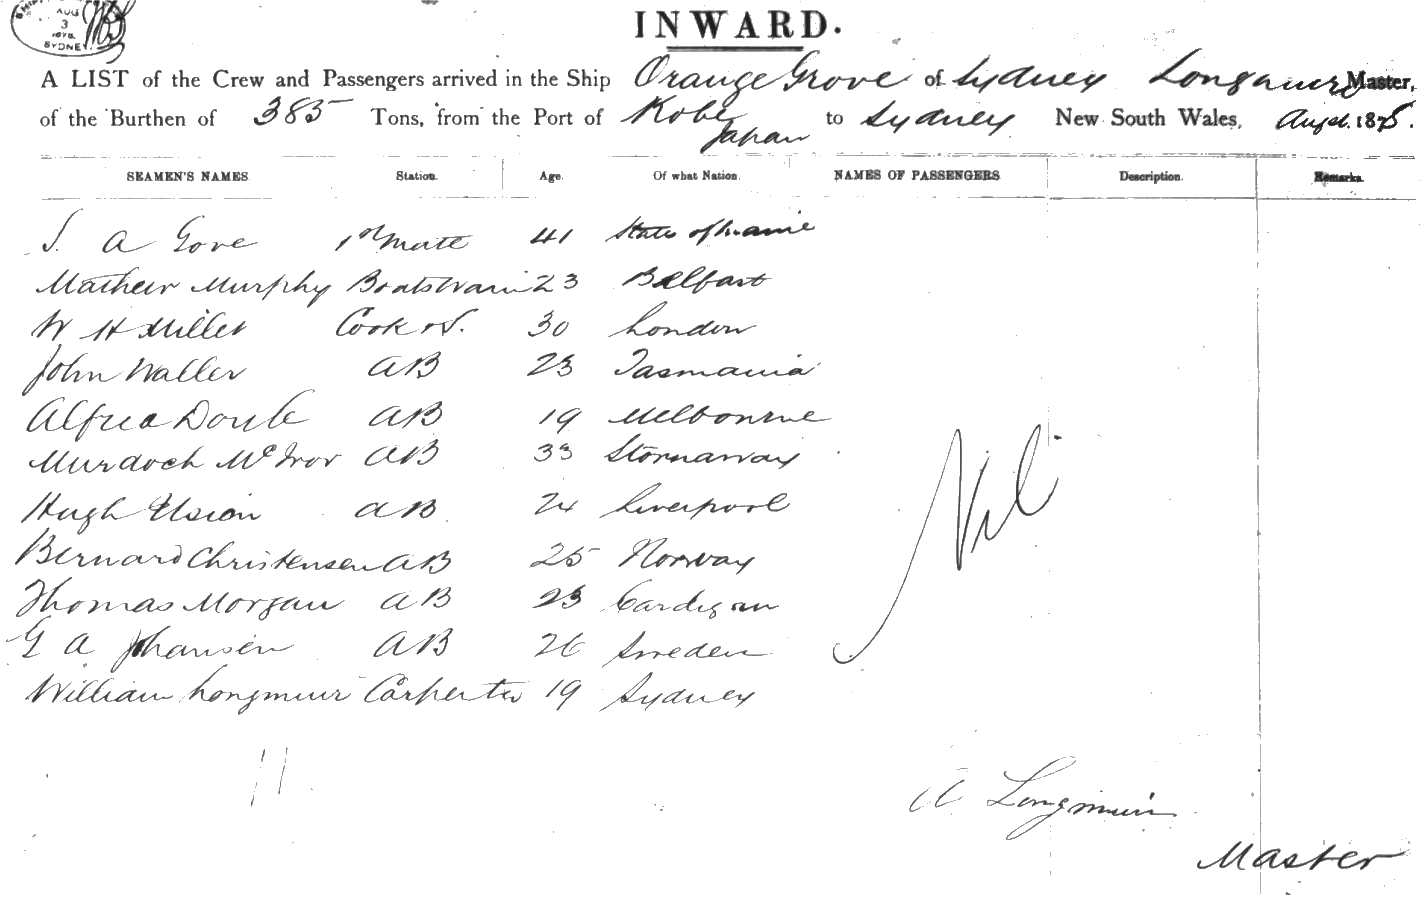 AUG
3
1878
SYDNEY
INWARD.
A LIST of the Crew and Passengers arrived in the Ship Orange Grove of Sydney Longmuir Master,
of the Burthen of 385 Tons, from the Port of Kobe Japan to Sydney New South Wales, Augst. 1878.
SEAMEN'S NAMES Station. Age. Of what Nation. NAMES OF PASSENGERS Description. Remarks.
J. A Gove 1st Mate 41 State of Maine
Mathew Murphy Boatswain 23 Belfast
W H Miller Cook & S. 30 London
John Waller AB 23 Tasmania
Alfred AB 19 Melbourne
Murdoch McIvor AB 33 Stornaway
Hugh AB 24 Liverpool
Bernard Christensen AB 25 Norway
Thomas Morgan AB 23 Cardigan
G A Johansen AB 26 Sweden
William Longmuir Carpenter 19 Sydney
Nil
11
A Longmuir
Master